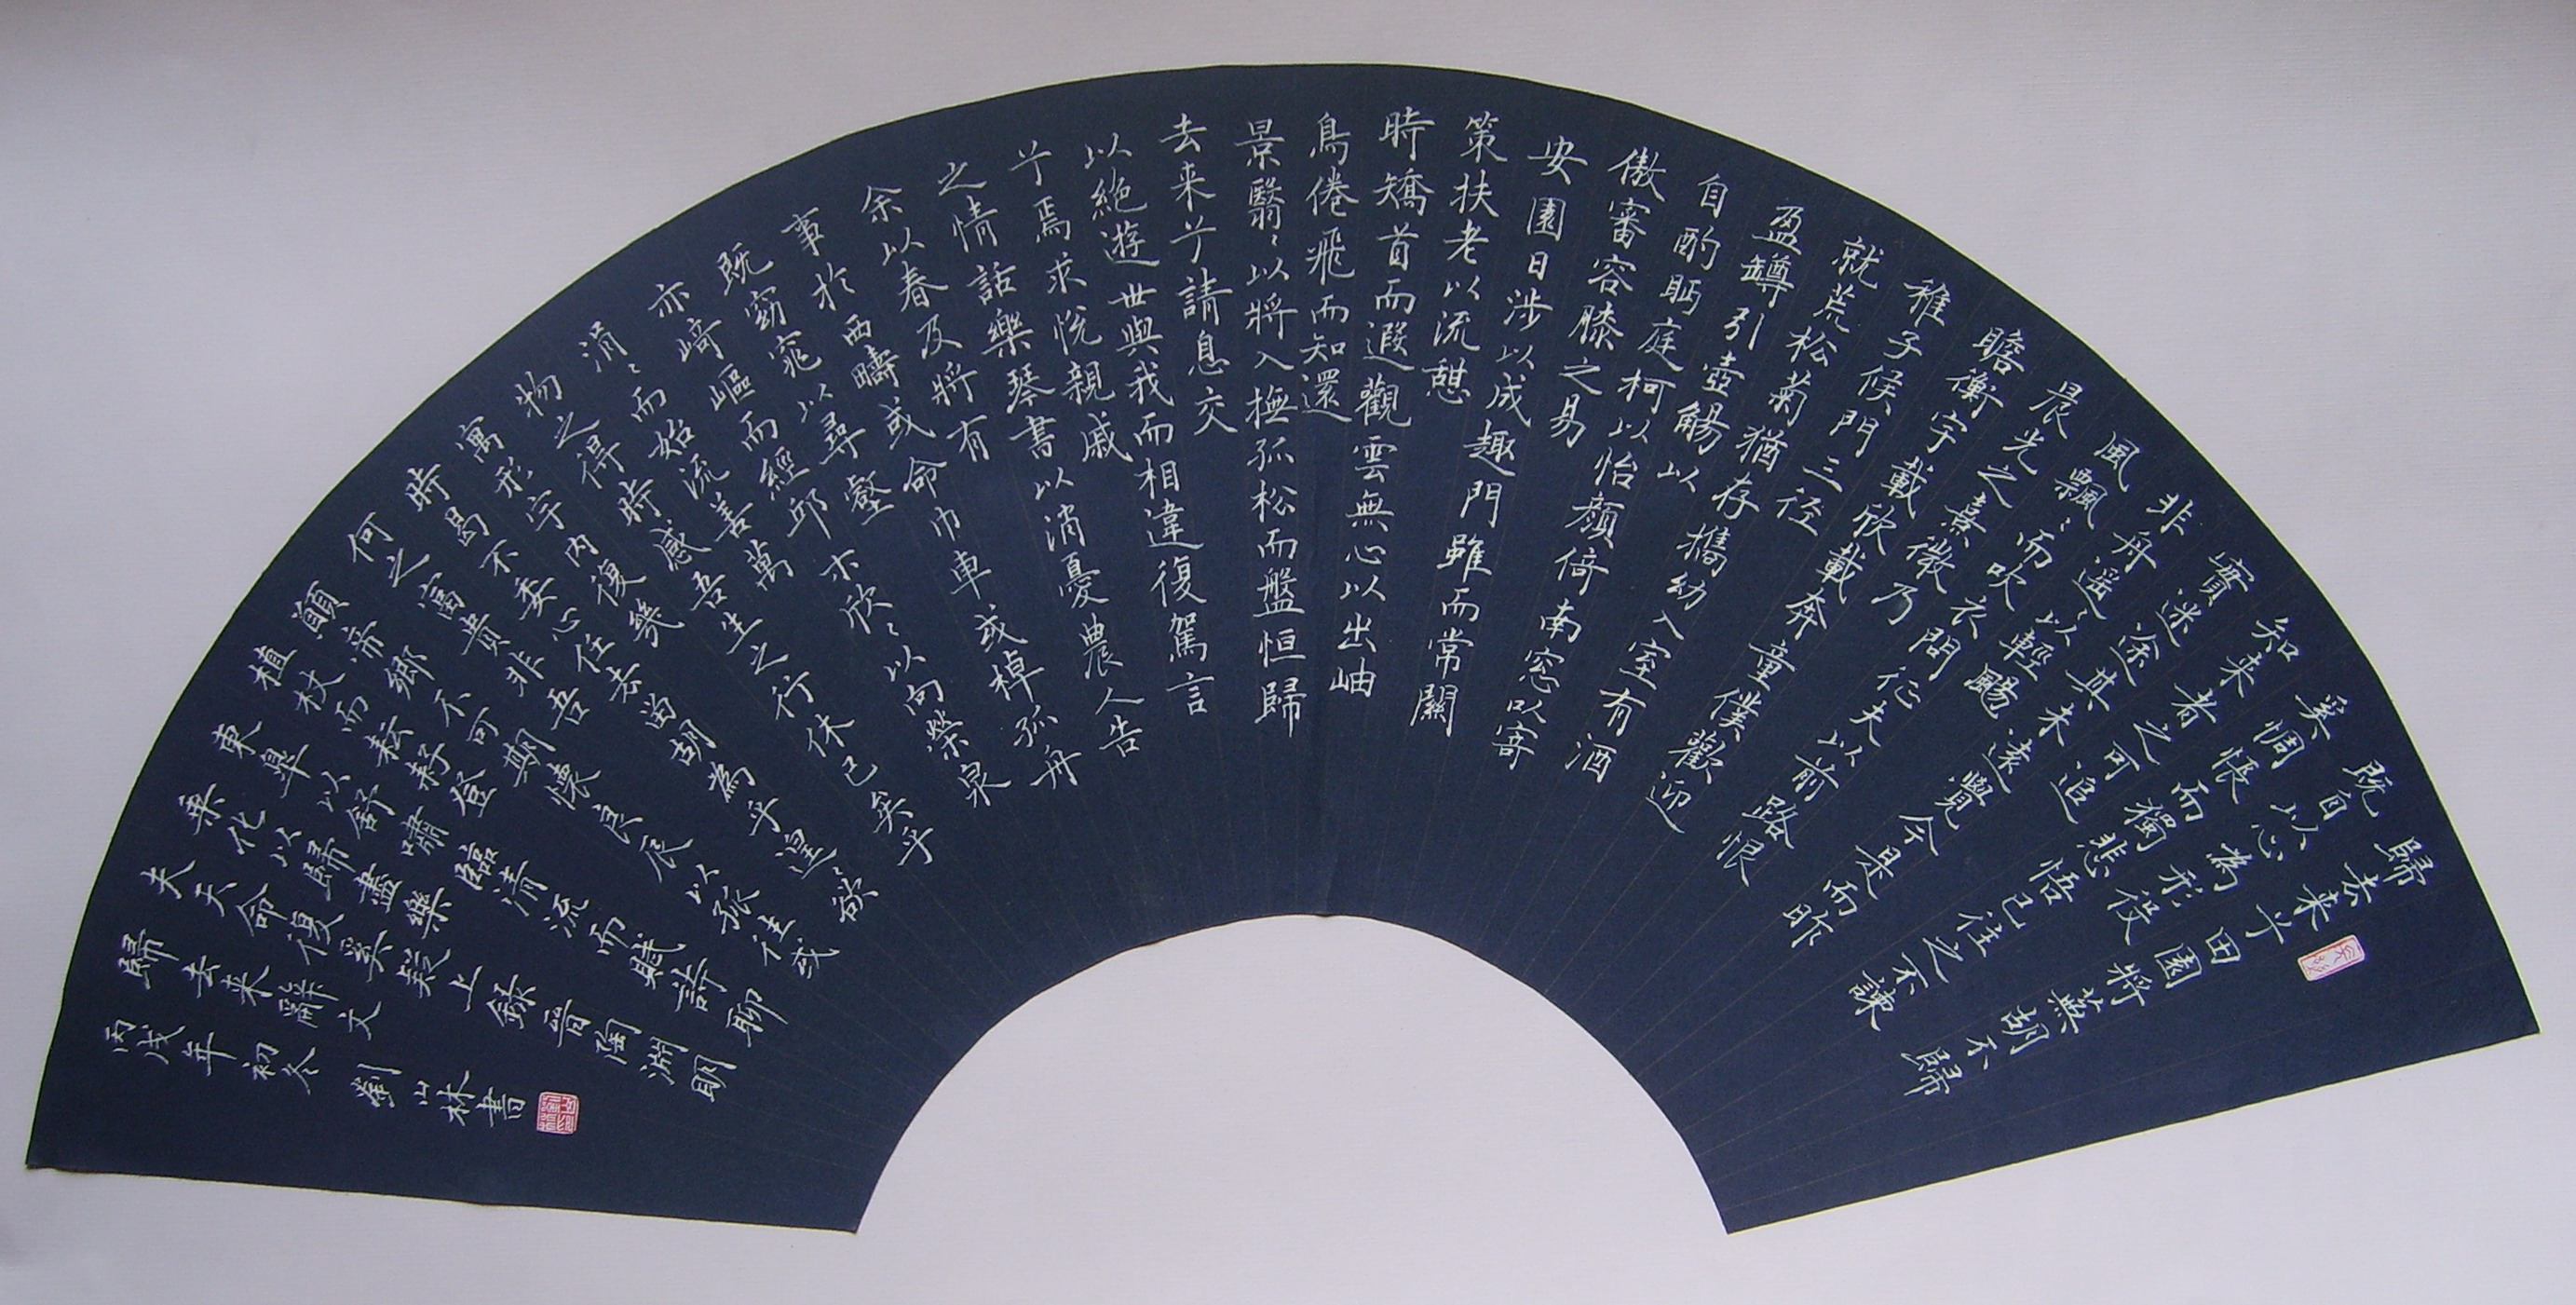 歸去来兮田園將蕪胡不歸
既自以心為形役
奚惆悵而獨悲悟已往之不諫
知来者之可追
實迷途其未遠覺今是而昨
非舟遥〻以輕颺
風飄〻而吹衣問征夫以前路恨
晨光之熹微乃
瞻衡宇載欣載奔童僕歡迎
稚子候門三徑
就荒松菊猶存攜幼入室有酒
盈罇引壺觴以
自酌眄庭柯以怡顏倚南窓以寄
傲審容膝之易
安園日涉以成趣門雖而常關
策扶老以流憩
時矯首而遐觀雲無心以出岫
鳥倦飛而知還
景翳〻以將入撫孤松而盤恒歸
去来兮請息交
以絕遊世與我而相違復駕言
兮焉求悅親戚
之情話樂琴書以消憂農人告
余以春及將有
事於西疇或命巾車或棹孤舟
既窈窕以尋壑
亦崎嶇而經邱木欣〻以向榮泉
涓〻而始流善萬
物之得時感吾生之行休已矣乎
寓形宇内復幾
時曷不委心任去留胡為乎遑〻欲
何之富貴非吾
願帝鄉不可期懷良辰以孤往或
植杖而耘耔登
東皋以舒嘯臨清流而賦詩聊
乘化以歸盡樂
夫天命復奚疑上錄晉陶淵明
歸去来辭文
丙戌年初冬 劉山林書